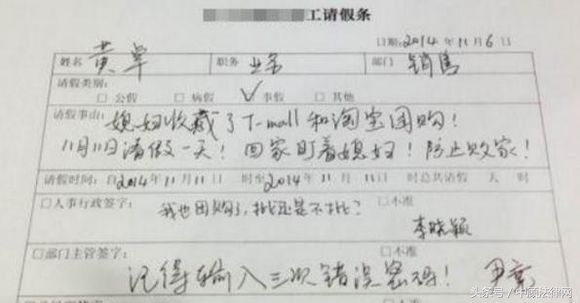 工请假条
日期:2014年11月6日
姓名 黄卓 职务 业务 部门 销售
请假类别:
□ 公假 □ 病假 ✓ 事假 □ 其他
请假事由: 媳妇收藏了T-mall和淘宝团购!
11月11日请假一天! 回家盯着媳妇! 防止败家!
请假时间: 自2014年11月11日 时至2014年11月11日 时总共请假 天 时
□人事行政签字: □不准
我也团购了,批还是不批?
李晓颖
□部门主管签字: □不准
记得输入三次错误密码!
头条号 / 中顾法律网